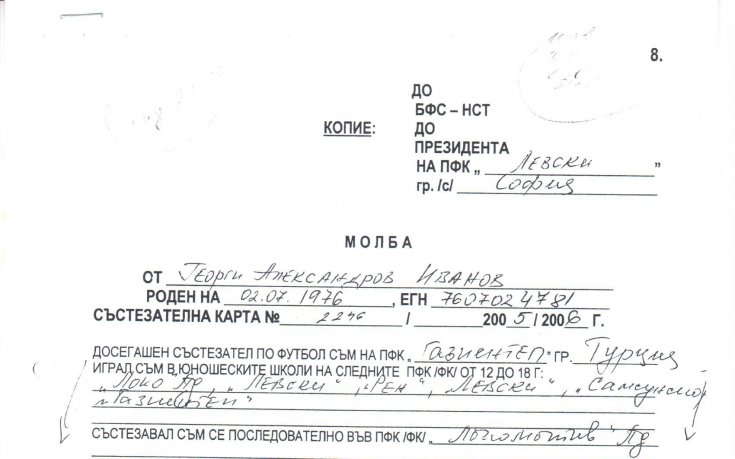 8.
ДО
БФС – НСТ
КОПИЕ: ДО
ПРЕЗИДЕНТА
НА ПФК „ Левски ”
гр. /с/ София
МОЛБА
ОТ Георги Александров Иванов
РОДЕН НА 02.07.1976, ЕГН 7607024781
СЪСТЕЗАТЕЛНА КАРТА № 2246 / 2005/2006 г.
ДОСЕГАШЕН СЪСТЕЗАТЕЛ ПО ФУТБОЛ СЪМ НА ПФК „Газиентеп” ГР. Турция
ИГРАЛ СЪМ В ЮНОШЕСКИТЕ ШКОЛИ НА СЛЕДНИТЕ ПФК /ФК/ ОТ 12 ДО 18 Г:
„Локо Пд, „Левски”, „Рен”, „Левски”, „Самсунспор
„Газиентеп”
СЪСТЕЗАВАЛ СЪМ СЕ ПОСЛЕДОВАТЕЛНО ВЪВ ПФК /ФК/ „Локомотив” Пд